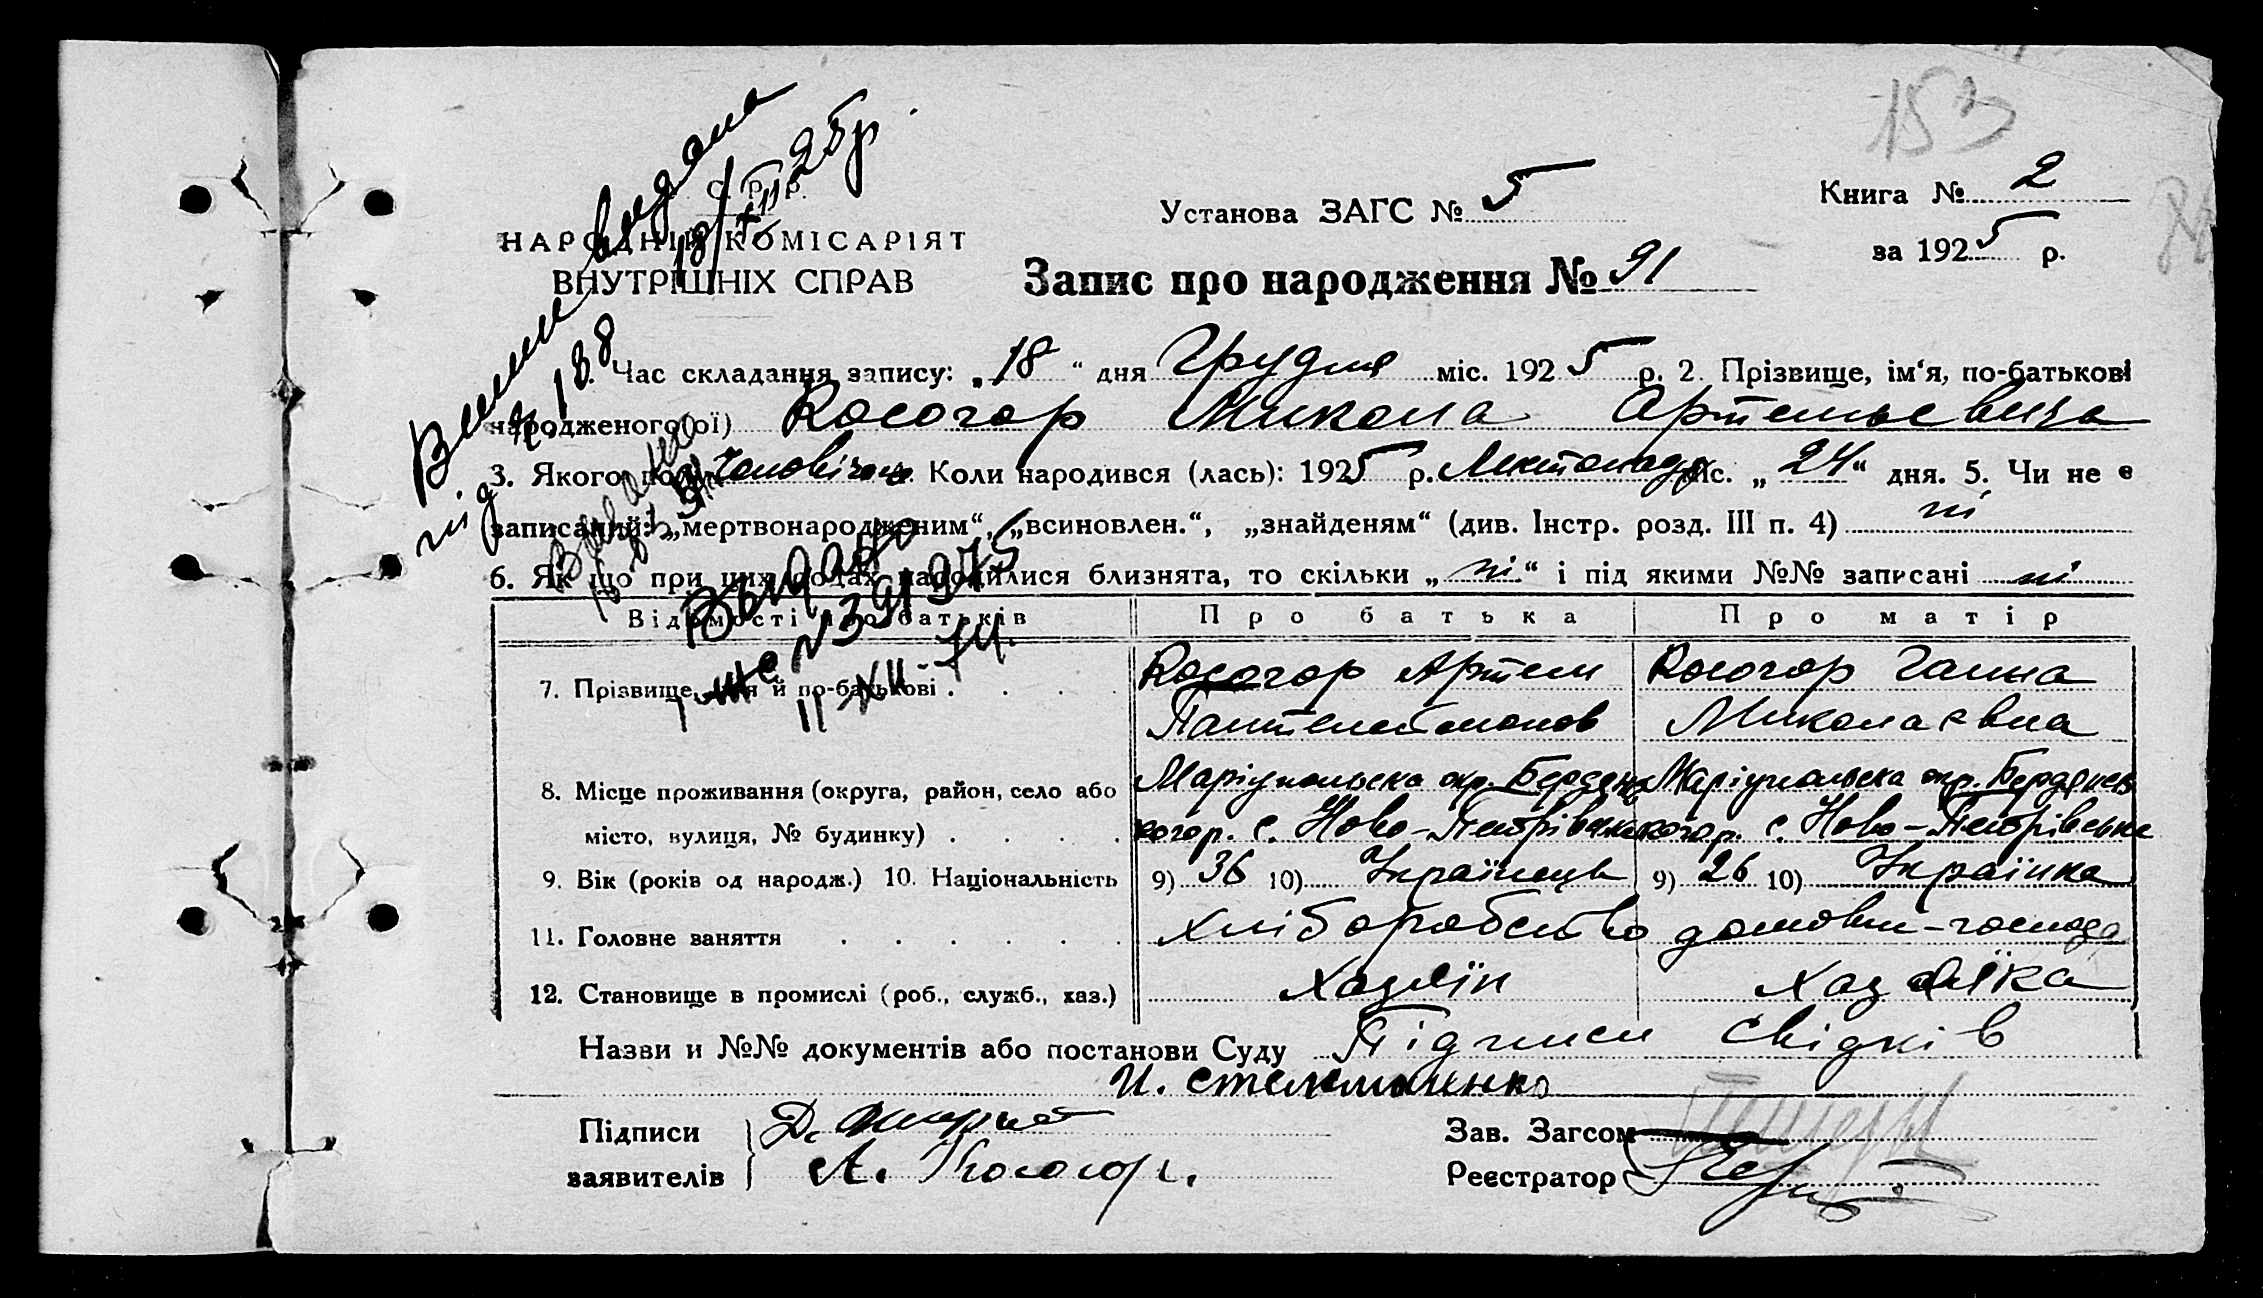 153
У. С. Р. Р.
НАРОДНІЙ КОМІСАРІЯТ
ВНУТРІШНІХ СПРАВ
Установа ЗАГС № 5
Книга № 2
за 1925 р.
Запис про народження № 91
Випис видана
18/XII 25 р.
під № 188
1. Час складання запису: „18“ дня Грудня міс. 1925 р. 2. Прізвище, ім‘я, по-батькові
народженого(ої) Косогор Микола Артемьевича
3. Якого полу Чоловічого 4. Коли народився (лась): 1925 р. Листопада міс. „24“ дня. 5. Чи не є
записаний: „мертвонародженим“, „всиновлен.“, „знайденям“ (див. Інстр. розд. III п. 4) ні
6. Як що при цих родах народилися близнята, то скільки „ні“ і під якими №№ записані ні
Выдано
№ 391375
11-XII-74.
Відомості про батьків Про батька Про матір
7. Прізвище, ім‘я й по-батькові Косогор Артем Косогор Ганна
Пантелеймонов Миколаєвна
8. Місце проживання (округа, район, село або Маріупольська окр. Бердянс Маріупольска окр. Бердянсь
місто, вулиця, № будинку) кого р. с. Ново-Петрівка кого р. с. Ново-Петрівське
9. Вік (років од народж.) 10. Національність 9) 36 10) Українець 9) 26 10) Українка
11. Головне заняття хліборобство домовн-господа
12. Становище в промислі (роб., служб., хаз.) Хазяїн Хазяїка
Назви и №№ документів або постанови Суду Підписи свідків
И. Стельмаченко
Підписи
заявителів А. Косогор.
Зав. Загсом
Реєстратор